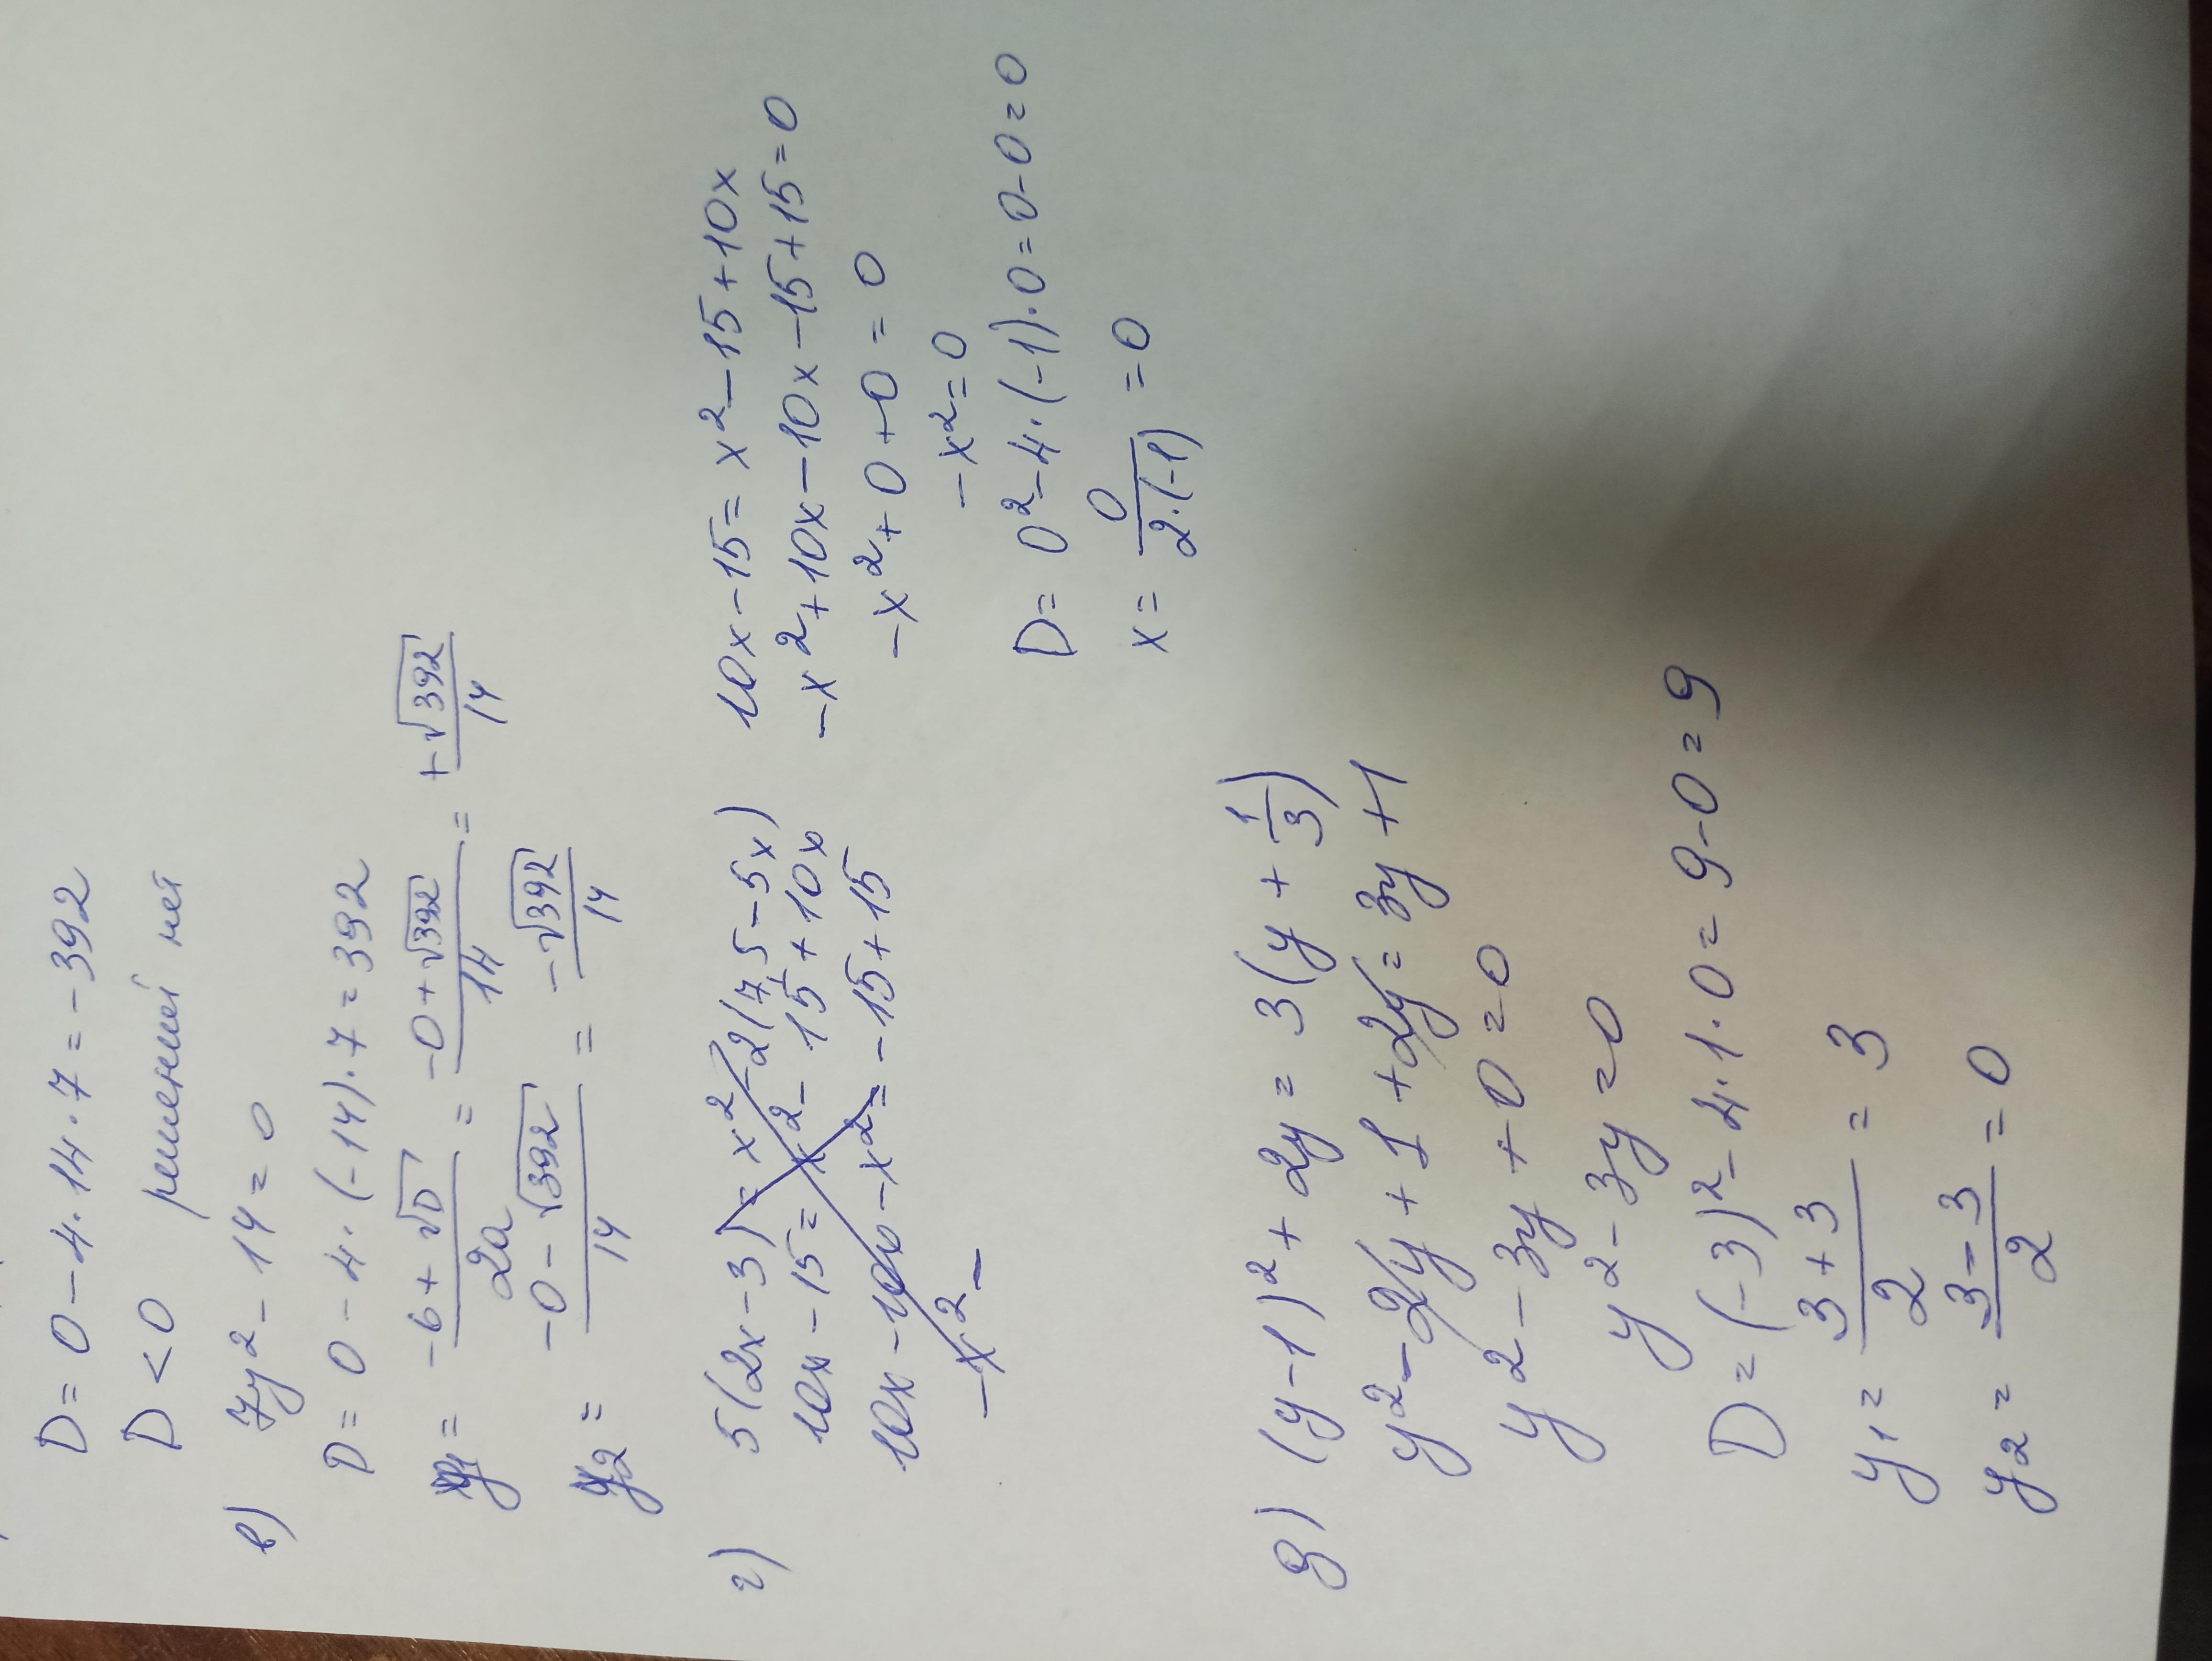 D = 0 - 4 · 14 · 7 = -392
D < 0 решений нет
в) 7y² - 14 = 0
D = 0 - 4 · (-14) · 7 = 392
y₁ = (-b + √D)/2a = (-0 + √392)/14 = +√392/14
y₂ = (-0 - √392)/14 = -√392/14
г) 5(2x - 3) = x² - 2(7,5 - 5x)
10x - 15 = x² - 15 + 10x
10x - 10x - x² = -15 + 15
-x² -
10x - 15 = x² - 15 + 10x
-x² + 10x - 10x - 15 + 15 = 0
-x² + 0 + 0 = 0
-x² = 0
D = 0² - 4 · (-1) · 0 = 0 - 0 = 0
x = 0/(2 · (-1)) = 0
д) (y - 1)² + 2y = 3(y + 1/3)
y² - 2y + 1 + 2y = 3y + 1
y² - 3y + 0 = 0
y² - 3y = 0
D = (-3)² - 4 · 1 · 0 = 9 - 0 = 9
y₁ = (3 + 3)/2 = 3
y₂ = (3 - 3)/2 = 0